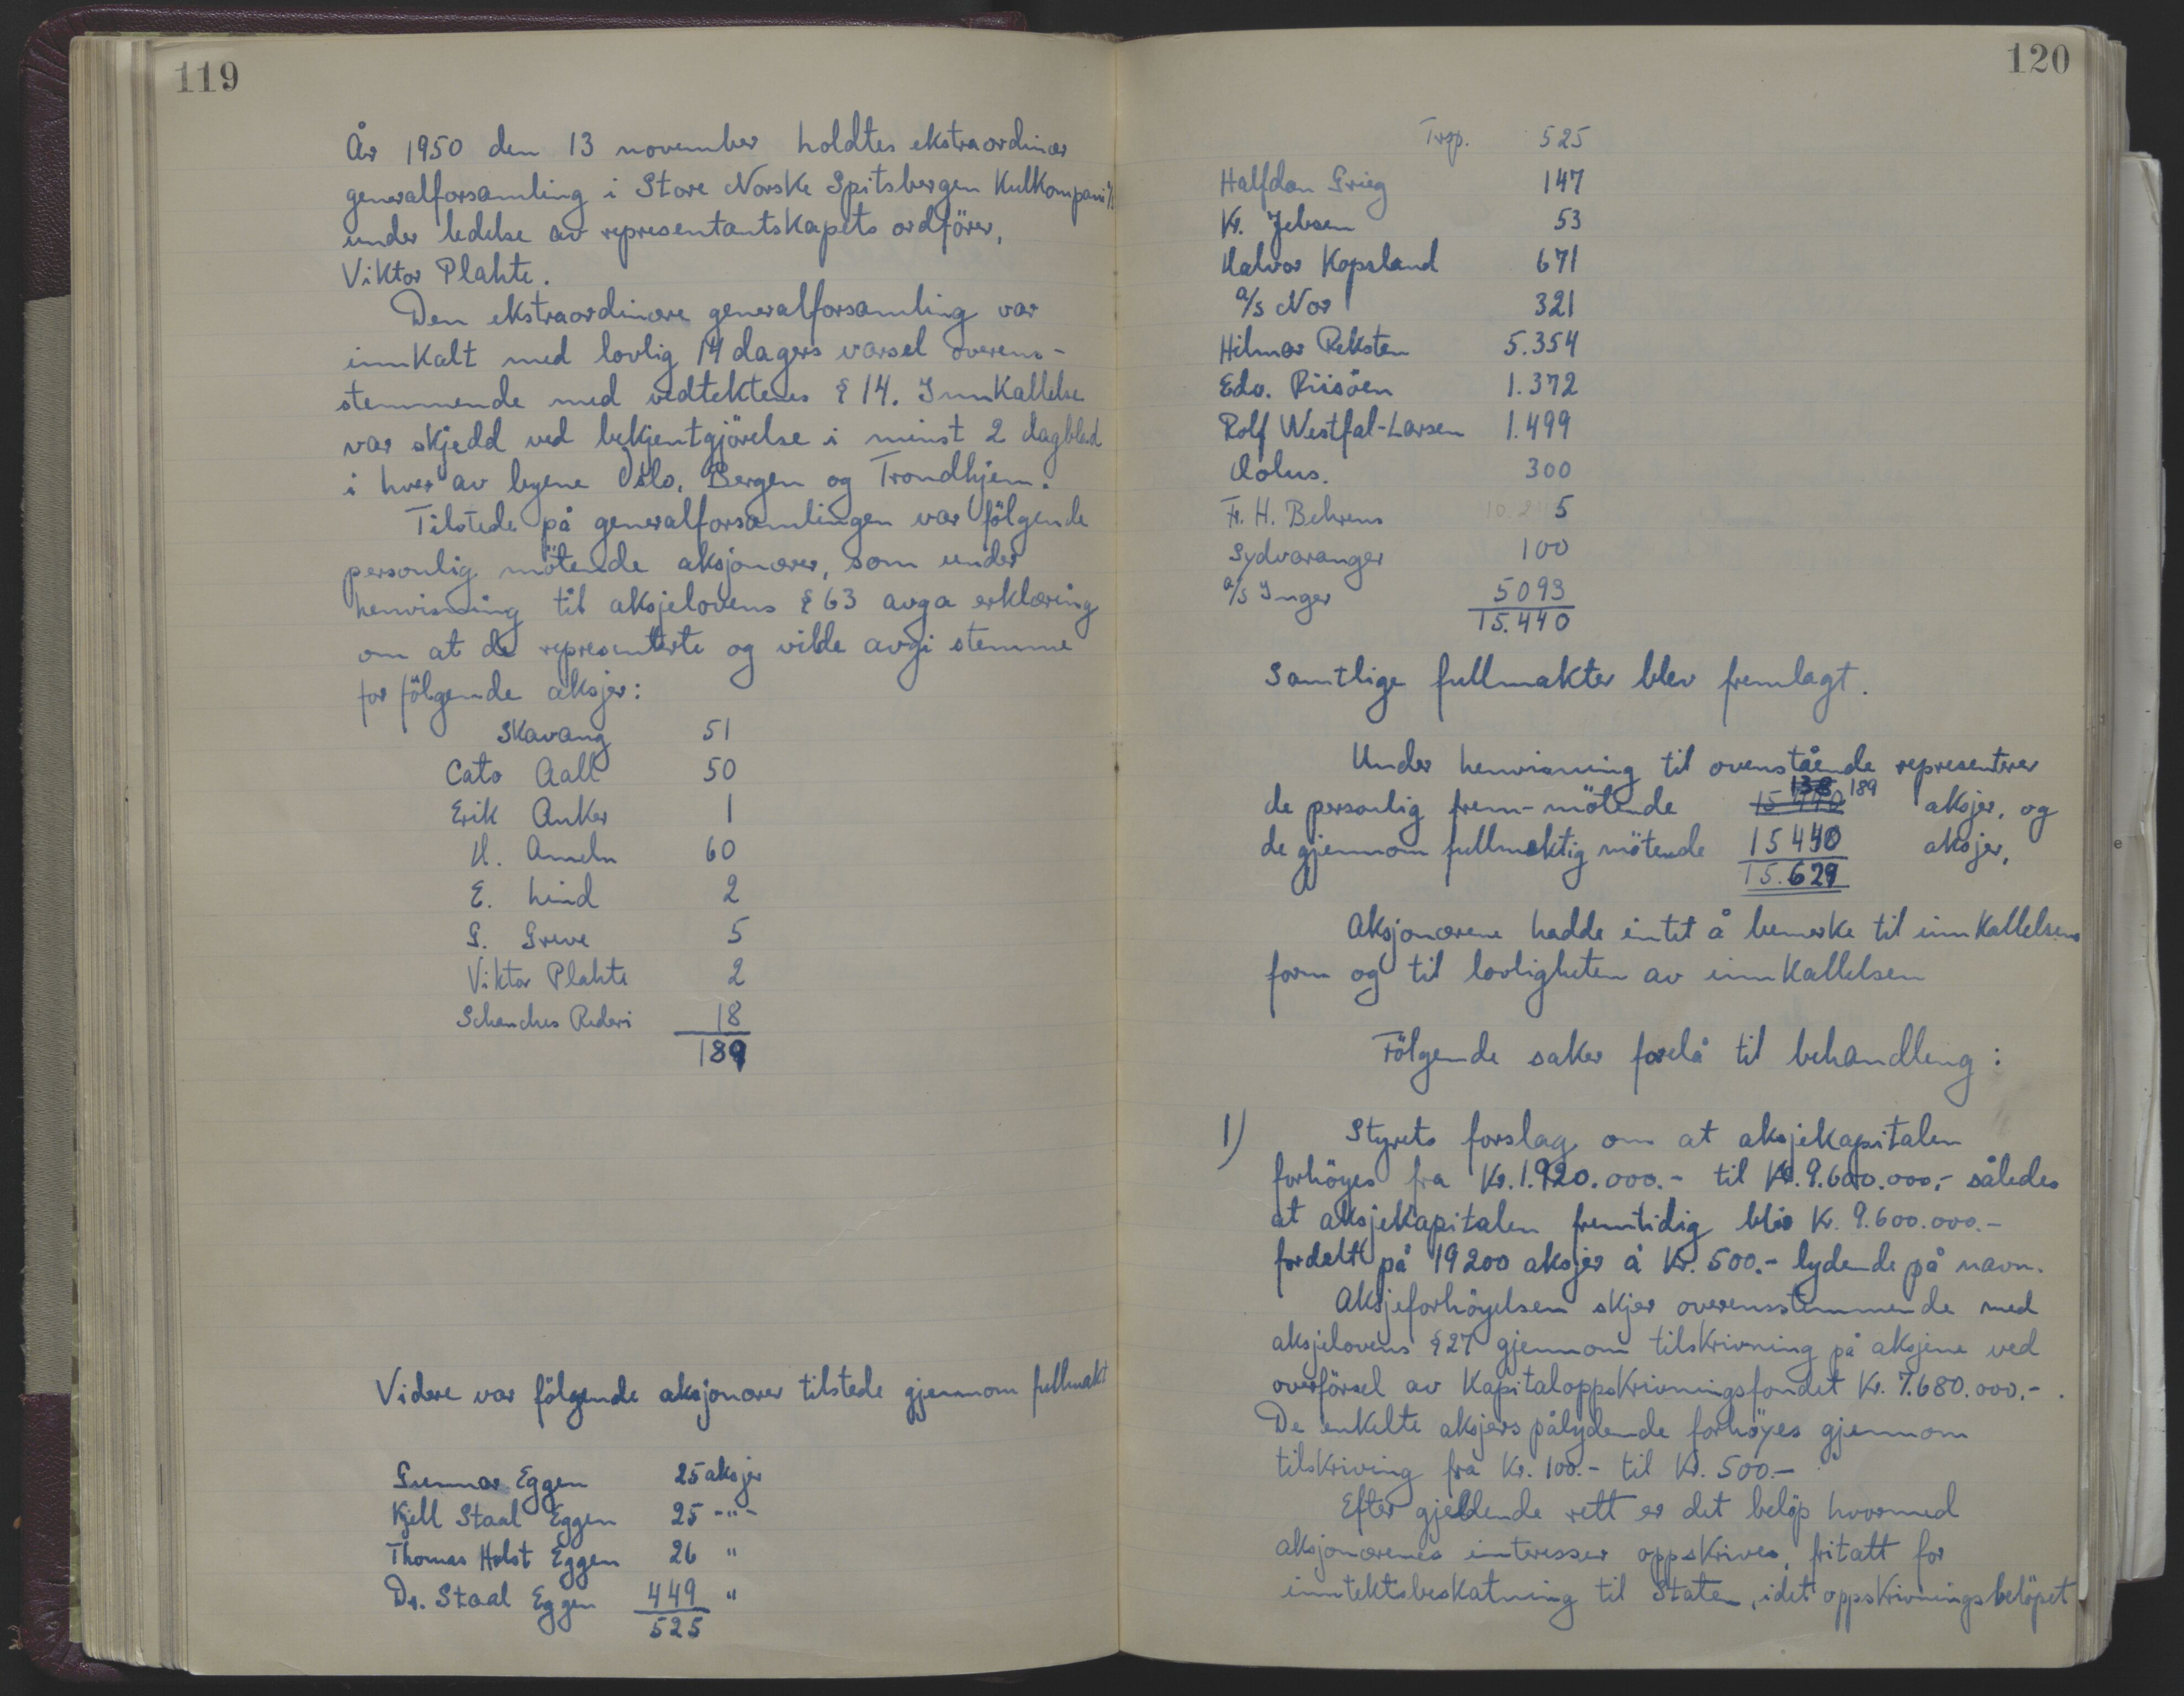 119
År 1950 den 13 november holdtes ekstraordinær
generalforsamling i Store Norske Spitsbergen Kulkompani A/S
under ledelse av representantskapets ordförer,
Viktor Plahte.
Den ekstraordinære generalforsamling var
innkalt med lovlig 14 dagers varsel overens-
stemmende med vedtektenes § 14. Innkallelse
var skjedd ved bekjentgjörelse i minst 2 dagblad
i hver av byene Oslo, Bergen og Trondhjem.
Tilstede på generalforsamlingen var fölgende
personlig mötende aksjonærer, som under
henvisning til aksjelovens § 63 avga erklæring
om at de representerte og vilde avgi stemme
for fölgende aksjer:
Skavang 51
Cato Aall 50
Erik Anker 1
H. Ameln 60
E. Lind 2
G. Greve 5
Viktor Plahte 2
Schanches Rederi 18
189
Videre var fölgende aksjonærer tilstede gjennom fullmakt
Gunnar Eggen 25 aksjer
Kjell Staal Eggen 25 -"-
Thomas Holst Eggen 26 "
Dr. Staal Eggen 449 "
525
120
Trsp. 525
Halfdan Grieg 147
Kr. Jebsen 53
Halvor Kopsland 671
A/S Nor 321
Hilmar Reksten 5.354
Edv. Riisöen 1.372
Rolf Westfal-Larsen 1.499
Aolus. 300
Fr. H. Behrens 5
Sydvaranger 100
A/S Inger 5093
15.440
Samtlige fullmakter blev fremlagt.
Under henvisning til ovenstående representerer
138 189
de personlig frem-mötende 15440 aksjer, og
de gjennom fullmektig mötende 15440 aksjer,
15.629
Aksjonærene hadde intet å bemerke til innkallelsens
form og til lovligheten av innkallelsen
Fölgende saker forelå til behandling:
1) Styrets forslag om at aksjekapitalen
forhöyes fra Kr. 1.920.000.- til Kr. 9.600.000,- således
at aksjekapitalen fremtidig blir Kr. 9.600.000.-
fordelt på 19200 aksjer á Kr. 500.- lydende på navn.
Aksjeforhöyelsen skjer overensstemmende med
aksjelovens § 27 gjennom tilskrivning på aksjene ved
overförsel av Kapitaloppskrivningsfondet Kr. 7.680.000,-.
De enkelte aksjers pålydende forhöyes gjennom
tilskriving fra Kr. 100.- til Kr. 500.-
Efter gjeldende rett er det belöp hvormed
aksjonærenes interesser oppskrives, fritatt for
inntektsbeskatning til Staten, idet oppskrivningsbelöpet